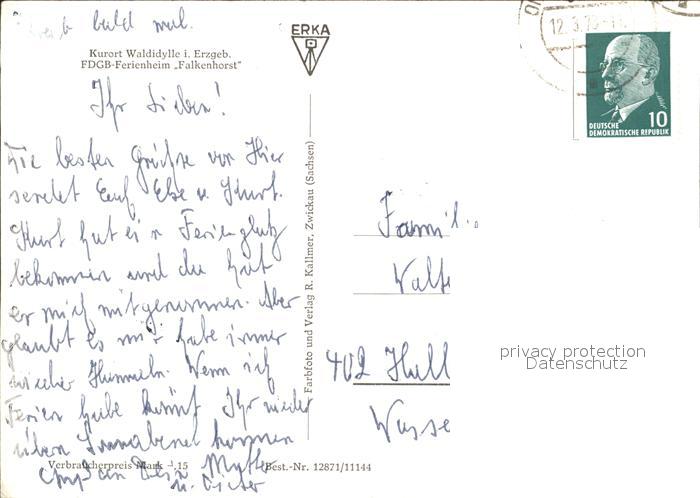 bald mal.
Kurort Waldidylle i. Erzgeb.
FDGB-Ferienheim „Falkenhorst"
Ihr Lieben!
Die besten Grüße von Hier
sendet Euch Else u. Kurt.
Kurt hat ein Ferienplatz
bekommen und da hat
er mich mitgenommen. Aber
glaubt es mir habe immer
wieder Himmeln. Wenn ich
Ferien habe kommt Ihr wieder
übern Sonnabend kommen
Gruß an Dein Mutter
u. Dieter
Verbraucherpreis Mark -.15
Best.-Nr. 12871/11144
ERKA
Farbfoto und Verlag R. Kallmer, Zwickau (Sachsen)
12.3.73
DEUTSCHE
DEMOKRATISCHE REPUBLIK
10
Famil.
Walte
402 Hall
privacy protection
Datenschutz